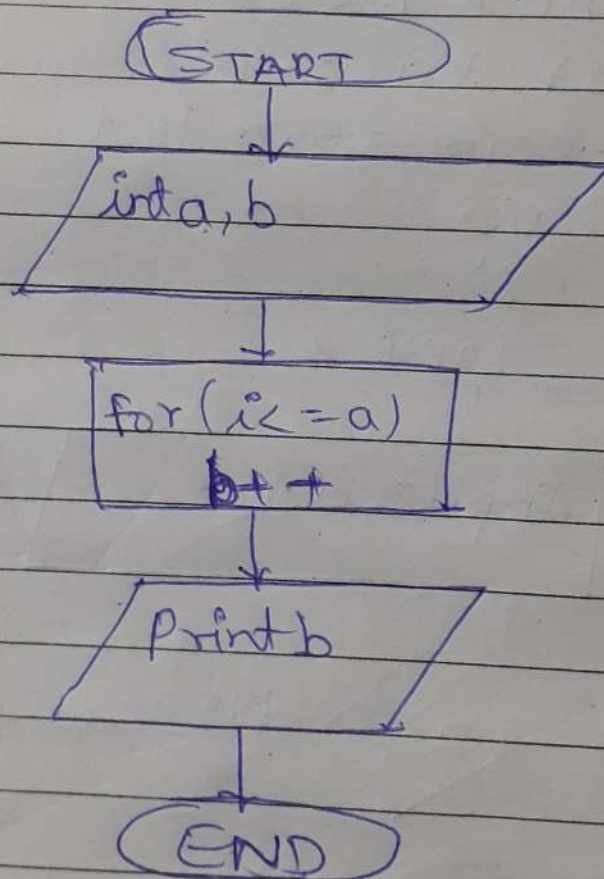 START
int a, b
for (i<=a)
b++
Print b
END